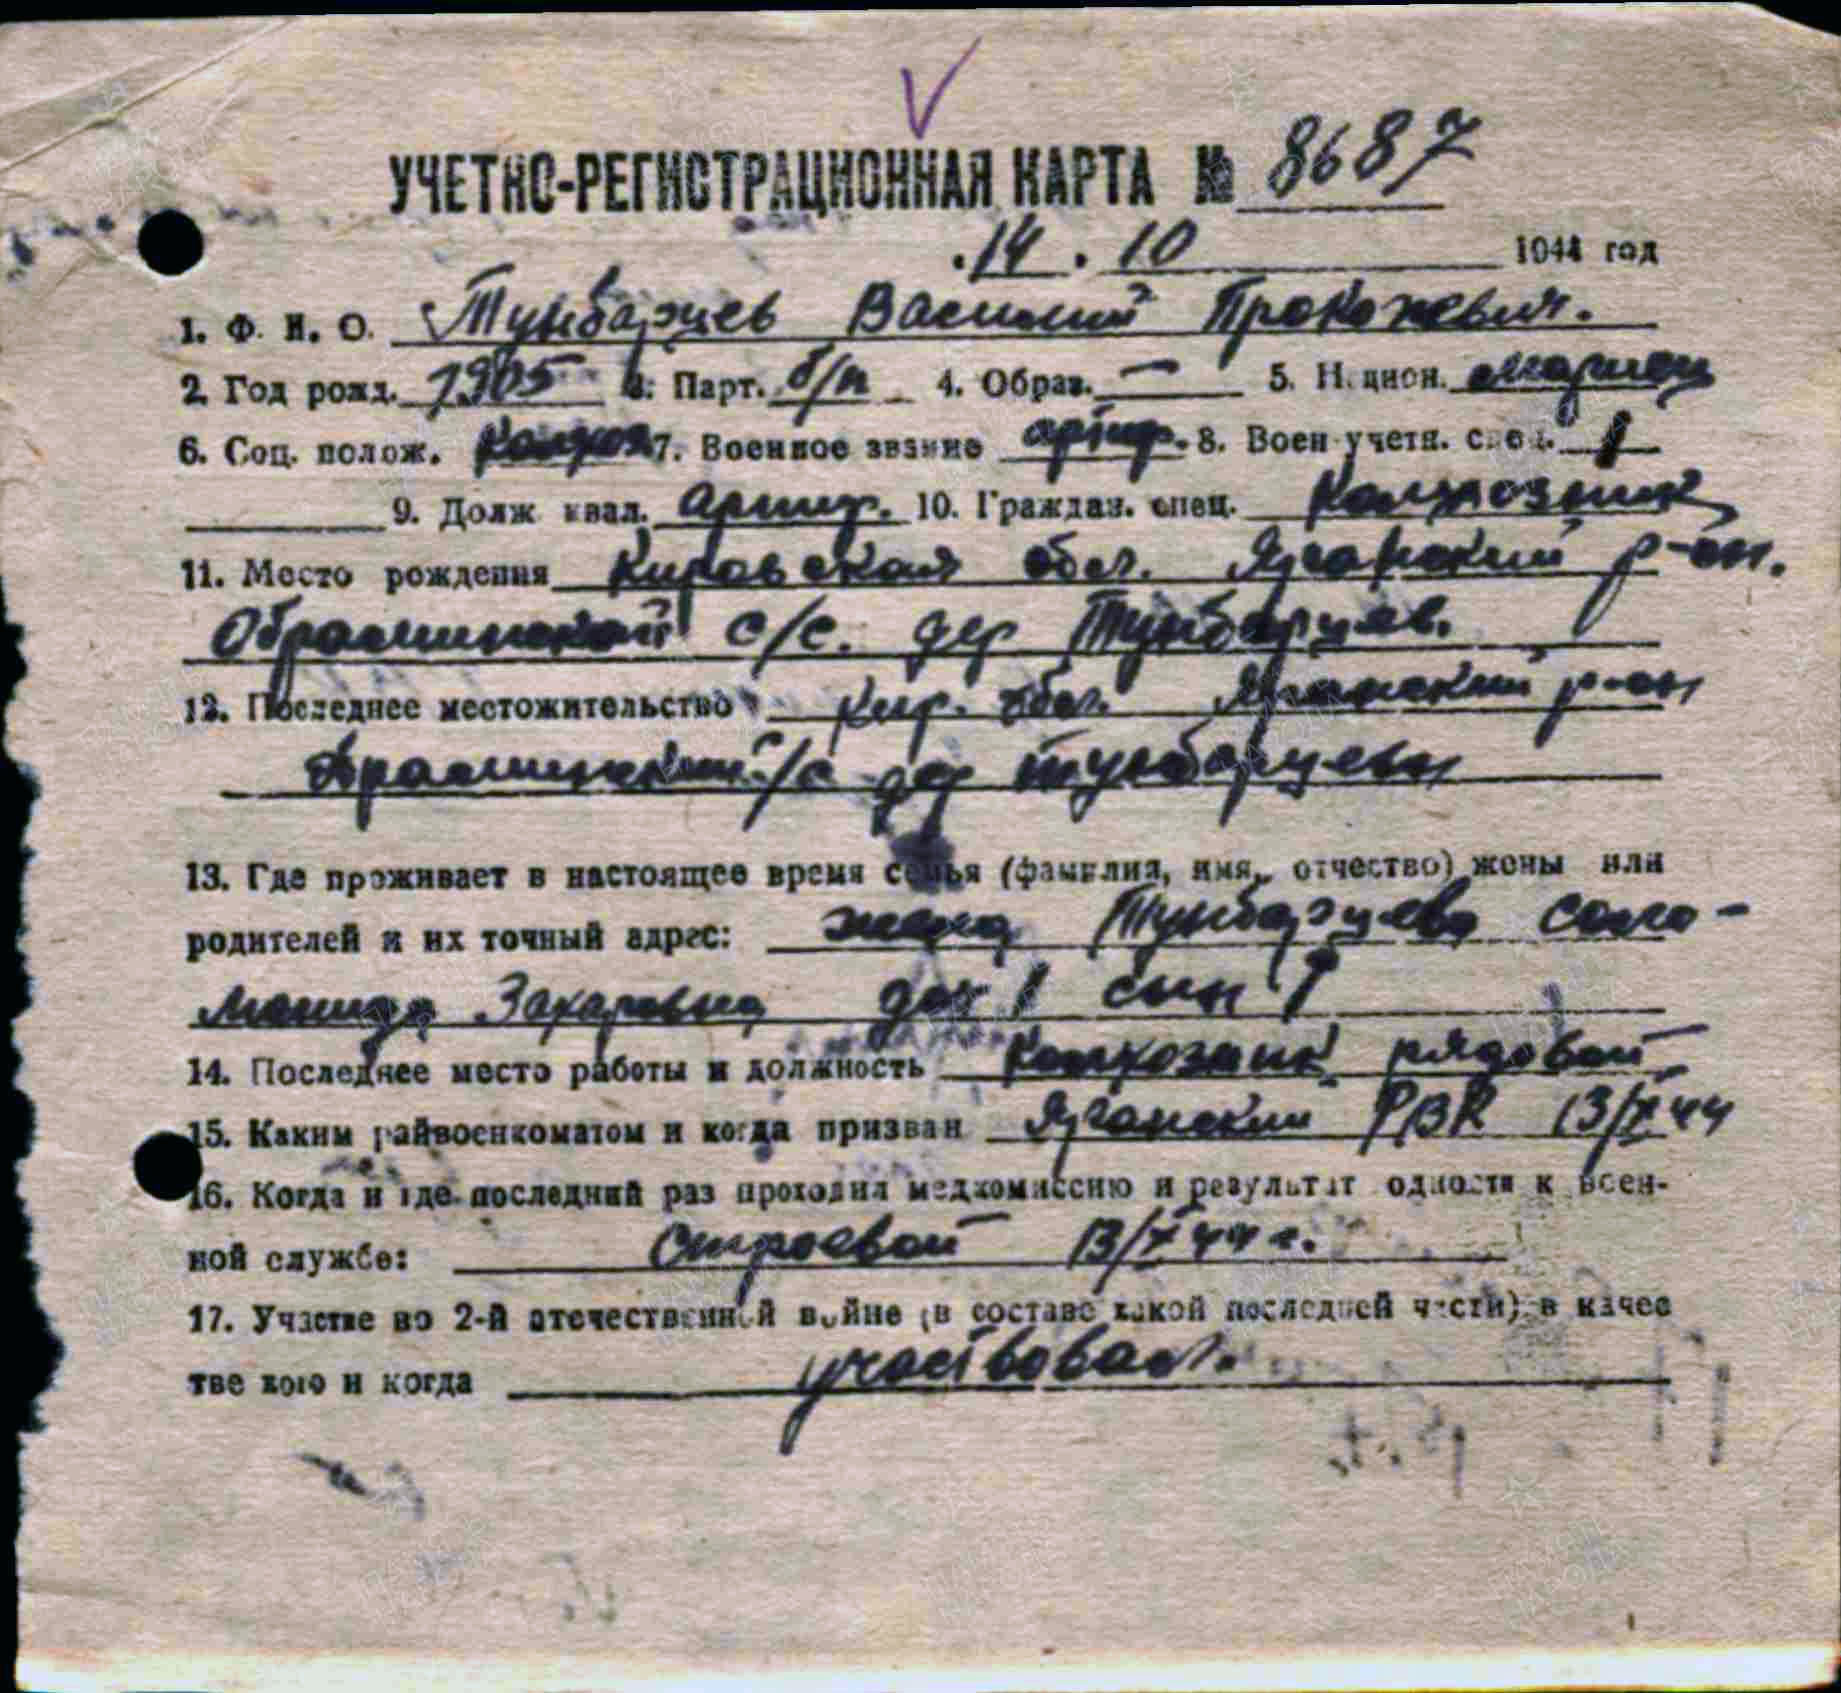 УЧЕТНО-РЕГИСТРАЦИОННАЯ КАРТА № 8687
14. 10 1944 год
1. Ф. И. О. Тунбарцев Василий
2. Год рожд. 1905 3. Парт. б/п 4. Образ. — 5. Национ.
6. Соц. полож. 7. Военное звание 8. Воен-учетн. спец. 1
9. Долж квал. 10. Граждан. спец. Колхозник
11. Место рождения Кировская обл. р-он.
с/с. дер Тунбарцев.
12. Последнее местожительство Кир. обл. р-он
с/с дер Тунбарцевы
13. Где проживает в настоящее время семья (фамилия, имя, отчество) жены или
родителей и их точный адрес: жена Тунбарцева Соло-
Захаровна 1 сын 1
14. Последнее место работы и должность Колхозник рядовой
15. Каким райвоенкоматом и когда призван РВК 13/X 44
16. Когда и где последний раз проходил медкомиссию и результат одности к воен-
ной службе: Строевой 13/X 44 г.
17. Участие во 2-й отечественной войне (в составе какой последней части) в качес
тве кого и когда участвовал.